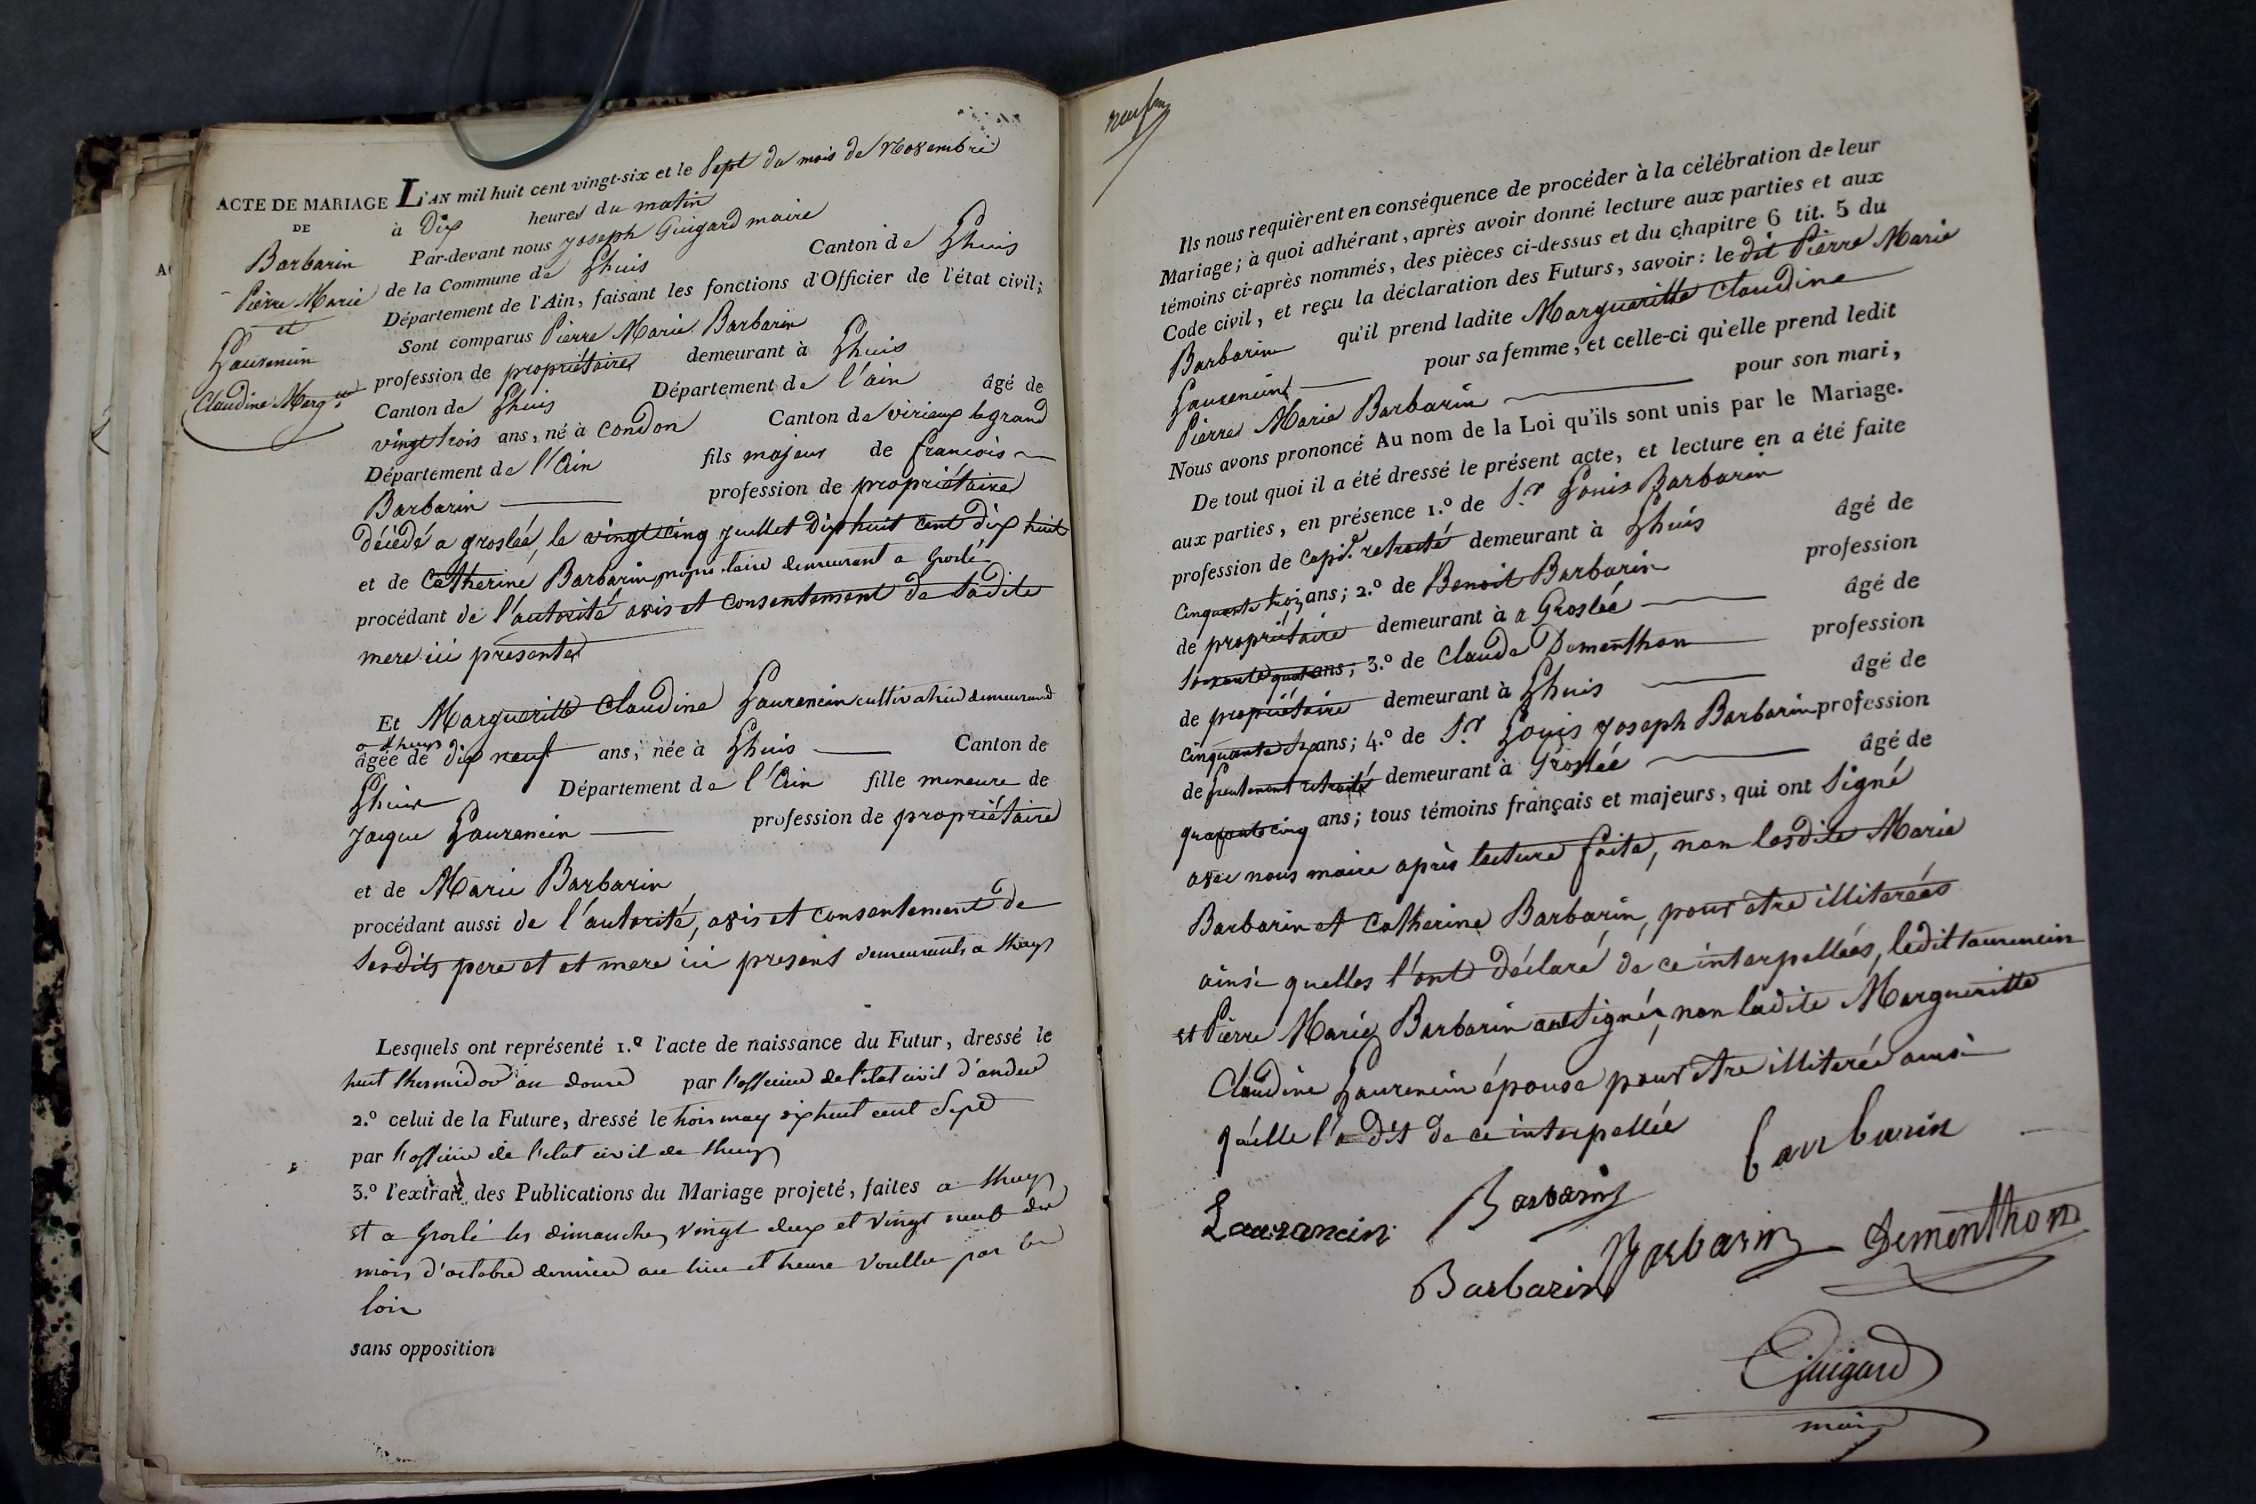 ACTE DE MARIAGE
DE
Barbarin
Pierre Marie
et
Laurencin
Claudine Marg.te
L'AN mil huit cent vingt-six et le Sept du mois de Novembre
à Dix heures du matin
Par-devant nous Joseph Guigard maire
de la Commune de Lhuis Canton de Lhuis
Département de l'Ain, faisant les fonctions d'Officier de l'état civil;
Sont comparus Pierre Marie Barbarin
profession de propriétaire demeurant à Lhuis
Canton de Lhuis Département de l'ain âgé de
vingt trois ans, né à Condon Canton de virieux legrand
Département de l'Ain fils majeur de francois
Barbarin profession de propriétaire
décédé a groslée, le vingt cinq juillet Dix huit cent dix huit
et de Catherine Barbarin propriétaire demeurant a Groslé
procédant de l'autorité avis et consentement de sadite
mere ici presente
Et Margueritte Claudine Laurencin cultivatrice demeurand
a Lhuys
âgée de dix neuf ans, née à Lhuis Canton de
Lhuis Département de l'Ain fille mineure de
Jacque Laurencin profession de propriétaire
et de Marie Barbarin
procédant aussi de l'autorité, avis et consentement de
sesdits pere et et mere ici presens demeurants a Lhuys
Lesquels ont représenté 1.º l'acte de naissance du Futur, dressé le
huit thermidor an douze par l'officier de l'etat civil d'andert
2.º celui de la Future, dressé le trois may dix huit cent Sept
par l'officier de l'etat civil de Lhuys
3.º l'extrait des Publications du Mariage projeté, faites a Lhuys
et a Groslé les dimanches vingt deux et vingt neuf du
mois d'octobre dernier au lieu et heure voullu par la
loix
sans opposition
Ils nous requièrent en conséquence de procéder à la célébration de leur
Mariage; à quoi adhérant, après avoir donné lecture aux parties et aux
témoins ci-après nommés, des pièces ci-dessus et du chapitre 6 tit. 5 du
Code civil, et reçu la déclaration des Futurs, savoir: le dit Pierre Marie
Barbarin qu'il prend ladite Margueritte Claudine
Laurencin pour sa femme, et celle-ci qu'elle prend ledit
Pierre Marie Barbarin pour son mari,
Nous avons prononcé Au nom de la Loi qu'ils sont unis par le Mariage.
De tout quoi il a été dressé le présent acte, et lecture en a été faite
aux parties, en présence 1.º de S.r Louis Barbarin
profession de Capi.e retraité demeurant à Lhuis âgé de
Cinquante trois ans; 2.º de Benoit Barbarin profession
de propriétaire demeurant à a Groslée âgé de
soixante quatre ans; 3.º de Claude Dementhon profession
de propriétaire demeurant à Lhuis âgé de
cinquante six ans; 4.º de S.r Louis Joseph Barbarin profession
de lieutenant retraité demeurant à Groslée âgé de
quarante cinq ans; tous témoins français et majeurs, qui ont Signé
avec nous maire après lecture faite, non lesdite Marie
Barbarin et Catherine Barbarin, pour etre illiterées
ainsi quelles l'ont déclaré de ce interpellées, ledit laurencin
et Pierre Marie Barbarin ont signés, non ladite Margueritte
Claudine Laurencin épouse pour etre illiterée ainsi
quelle l'a dit de ce interpellée
barbarin
Barbarin
Laurancin
Barbarin
Barbarin
Dementhon
Guigard
maire